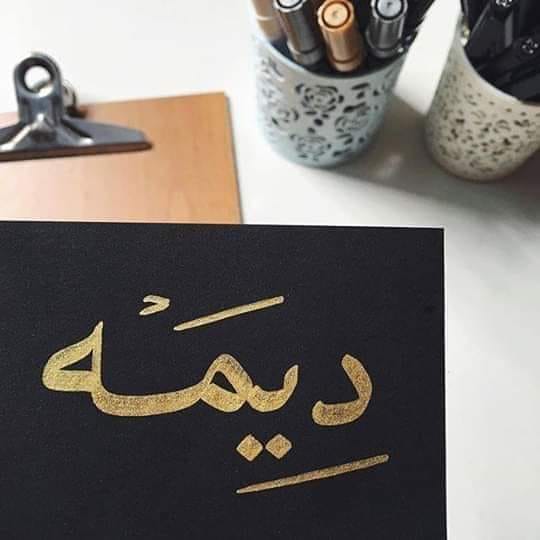 دِيمَهْ